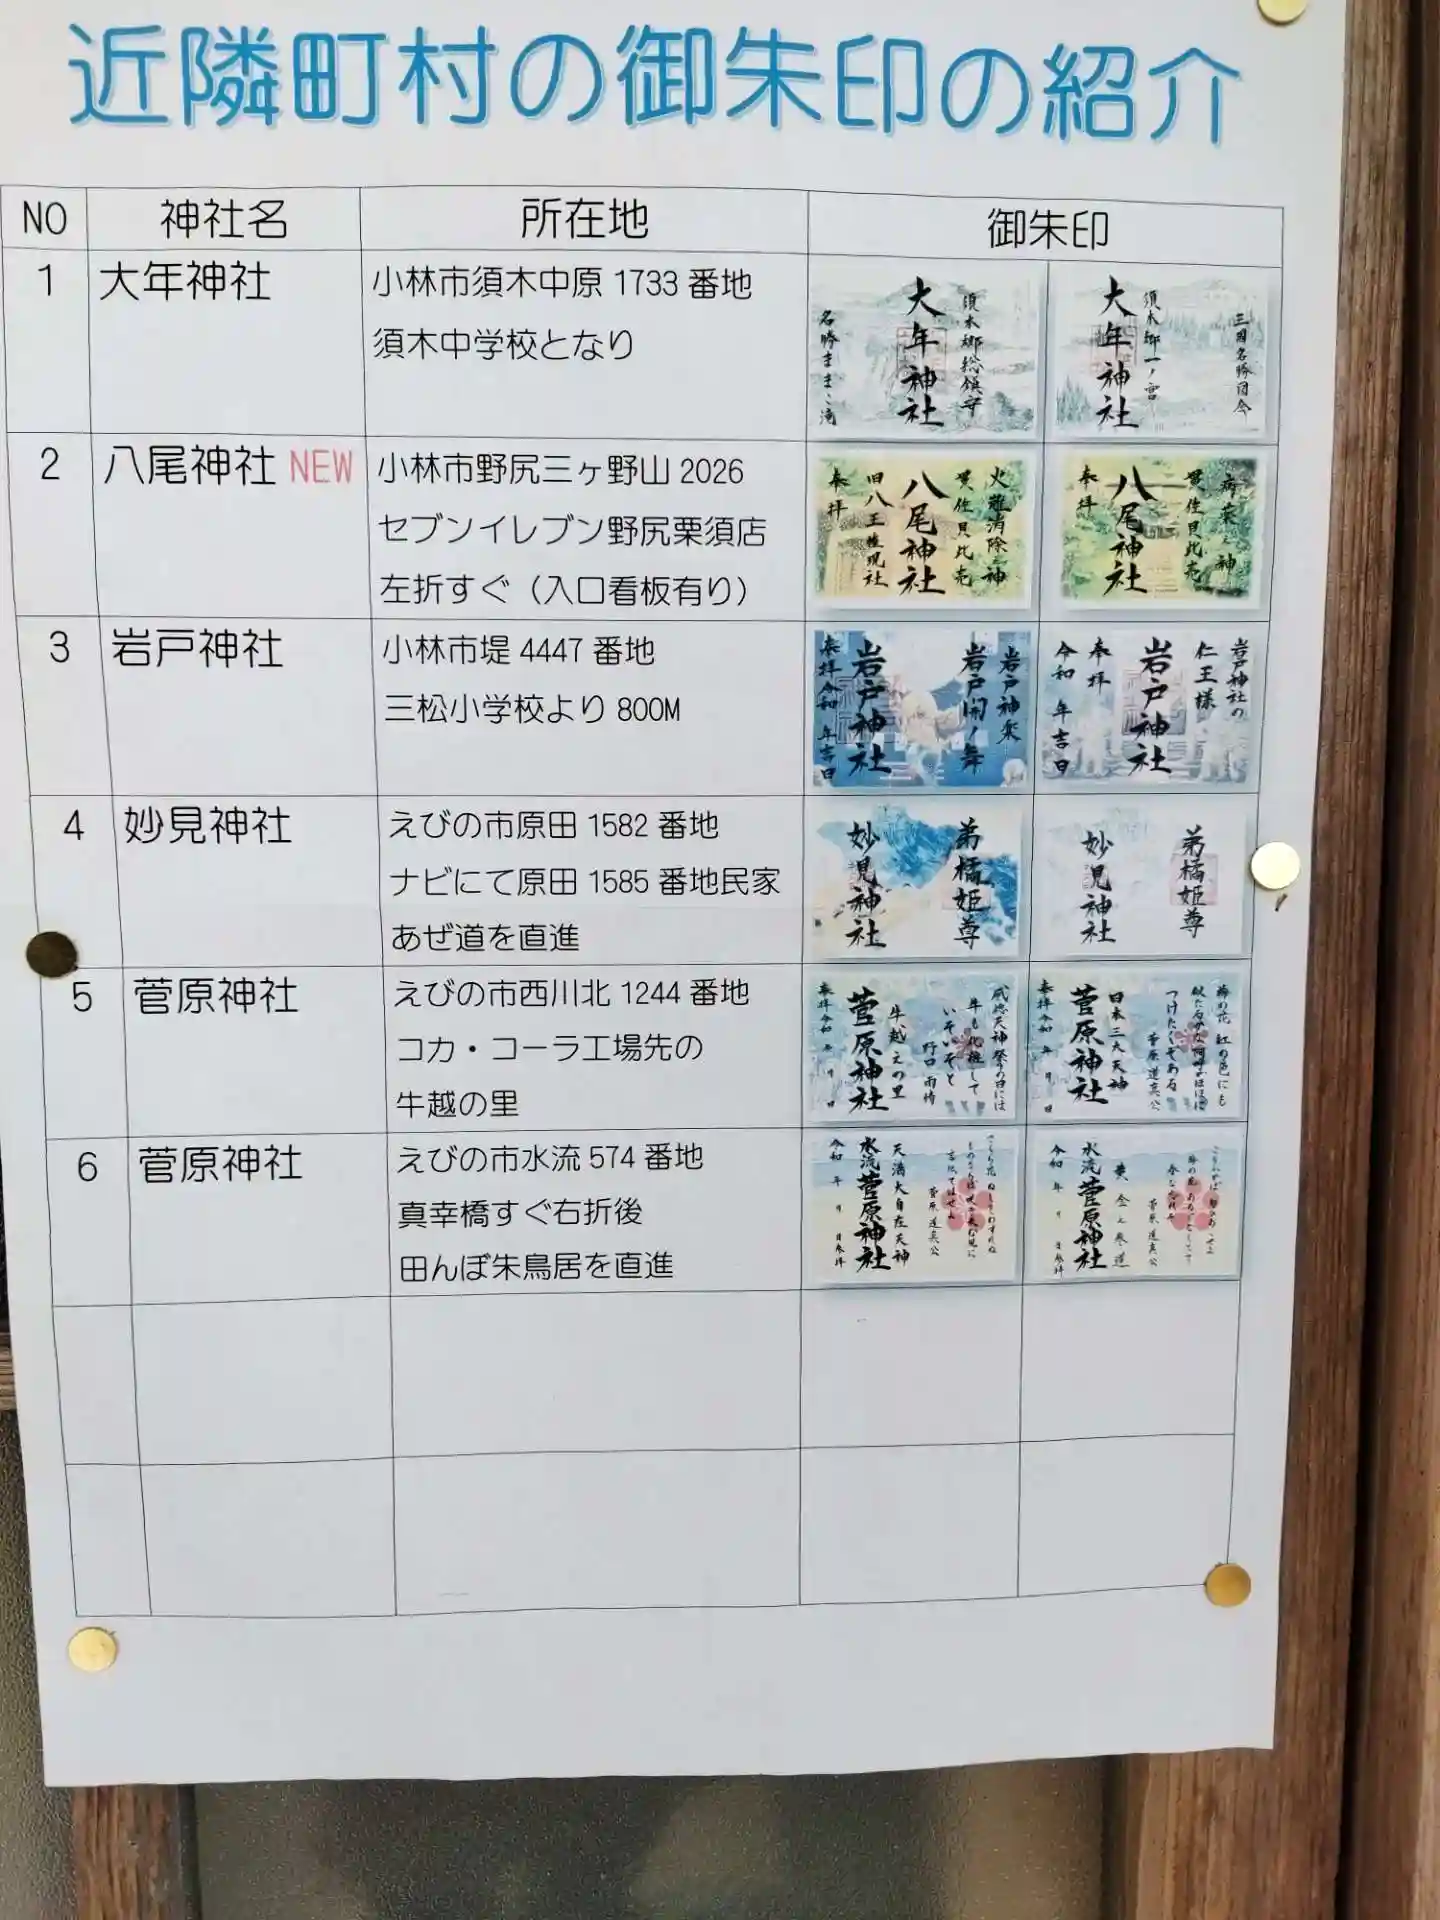 近隣町村の御朱印の紹介
NO 神社名 所在地 御朱印
1 大年神社 小林市須木中原 1733 番地
須木中学校となり
大年神社 須木郷総鎮守 名勝ままこ滝
三国名勝図会 須木郷一ノ宮 大年神社
2 八尾神社 NEW 小林市野尻三ヶ野山 2026
セブンイレブン野尻栗須店
左折すぐ（入口看板有り）
火難消除之神 貫佐貝比売 八尾神社 旧八王権現社 奉拝
貫佐貝比売 八尾神社 奉拝
3 岩戸神社 小林市堤 4447 番地
三松小学校より 800M
岩戸神楽 岩戸開ノ舞 岩戸神社 奉拝 令和 年吉日
岩戸神社の 仁王様 岩戸神社 奉拝 令和 年吉日
4 妙見神社 えびの市原田 1582 番地
ナビにて原田 1585 番地民家
あぜ道を直進
弟橘姫尊 妙見神社
弟橘姫尊 妙見神社
5 菅原神社 えびの市西川北 1244 番地
コカ・コーラ工場先の
牛越の里
牛も化粧して いそいそと 野口雨情 牛越えの里 菅原神社 奉拝 令和 年 月 日
梅の花 紅の色にも 菅原道真公 日本三大天神 菅原神社 奉拝 令和 年 月 日
6 菅原神社 えびの市水流 574 番地
真幸橋すぐ右折後
田んぼ朱鳥居を直進
菅原道真公 天満大自在天神 水流菅原神社 令和 年 月 日参拝
菅原道真公 黄金之参道 水流菅原神社 令和 年 月 日参拝